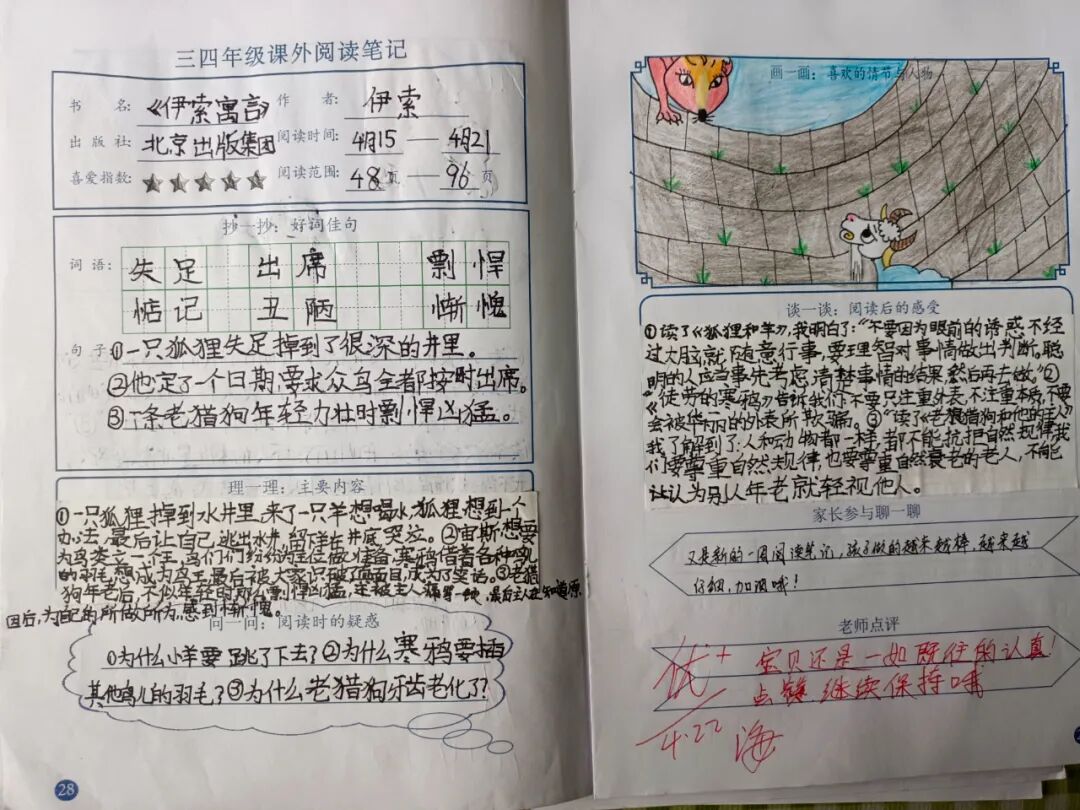 三四年级课外阅读笔记
书名：《伊索寓言》 作者：伊索
出版社：北京出版集团 阅读时间：4月15——4月21
喜爱指数：★★★★★ 阅读范围：48页——96页
抄一抄：好词佳句
词语：失足 出席 剽悍
惦记 丑陋 惭愧
句子①一只狐狸失足掉到了很深的井里。
②他定了一个日期,要求众鸟全都按时出席。
③一条老猎狗年轻力壮时剽悍凶猛。
理一理：主要内容
①一只狐狸掉到水井里,来了一只羊想喝水,狐狸想到一个
办法,最后让自己逃出水井,留下羊在井底哭泣。②宙斯想要
为鸟类立一个王,鸟们们纷纷
的羽毛,想成为鸟王,最后被大家识破了真面目,成为了笑话。③老猎
狗年老后,不似年轻时那么剽悍凶猛,
因后,为自己的所做所为,感到惭愧。
问一问：阅读时的疑惑
①为什么小羊要跳了下去?②为什么寒鸦要插
其他鸟儿的羽毛?③为什么老猎狗牙齿老化了?
28
画一画：喜欢的情节与人物
谈一谈：阅读后的感受
①读了《狐狸和羊》,我明白了:“不要因为眼前的诱惑,不经
过大脑就随意行事,要理智对事情做出判断。聪
明的人应当事先考虑清楚事情的结果,然后再去做。”②
《徒劳的寒鸦》告诉我们不要只注重外表,不注重本质,不要
会被华丽的外表所欺骗。③“读了《老猎狗和他的主人》
我了解到了:人和动物都一样,都不能抗拒自然规律,我
们要尊重自然规律,也要尊重自然衰老的老人,不能
让认为别人年老就轻视他人。
家长参与聊一聊
又是新的一周阅读笔记,孩子做的越来越棒,越来越
仔细,加油哦!
老师点评
优+ 宝贝还是一如既往的认真!
点赞,继续保持哦
4.22 海